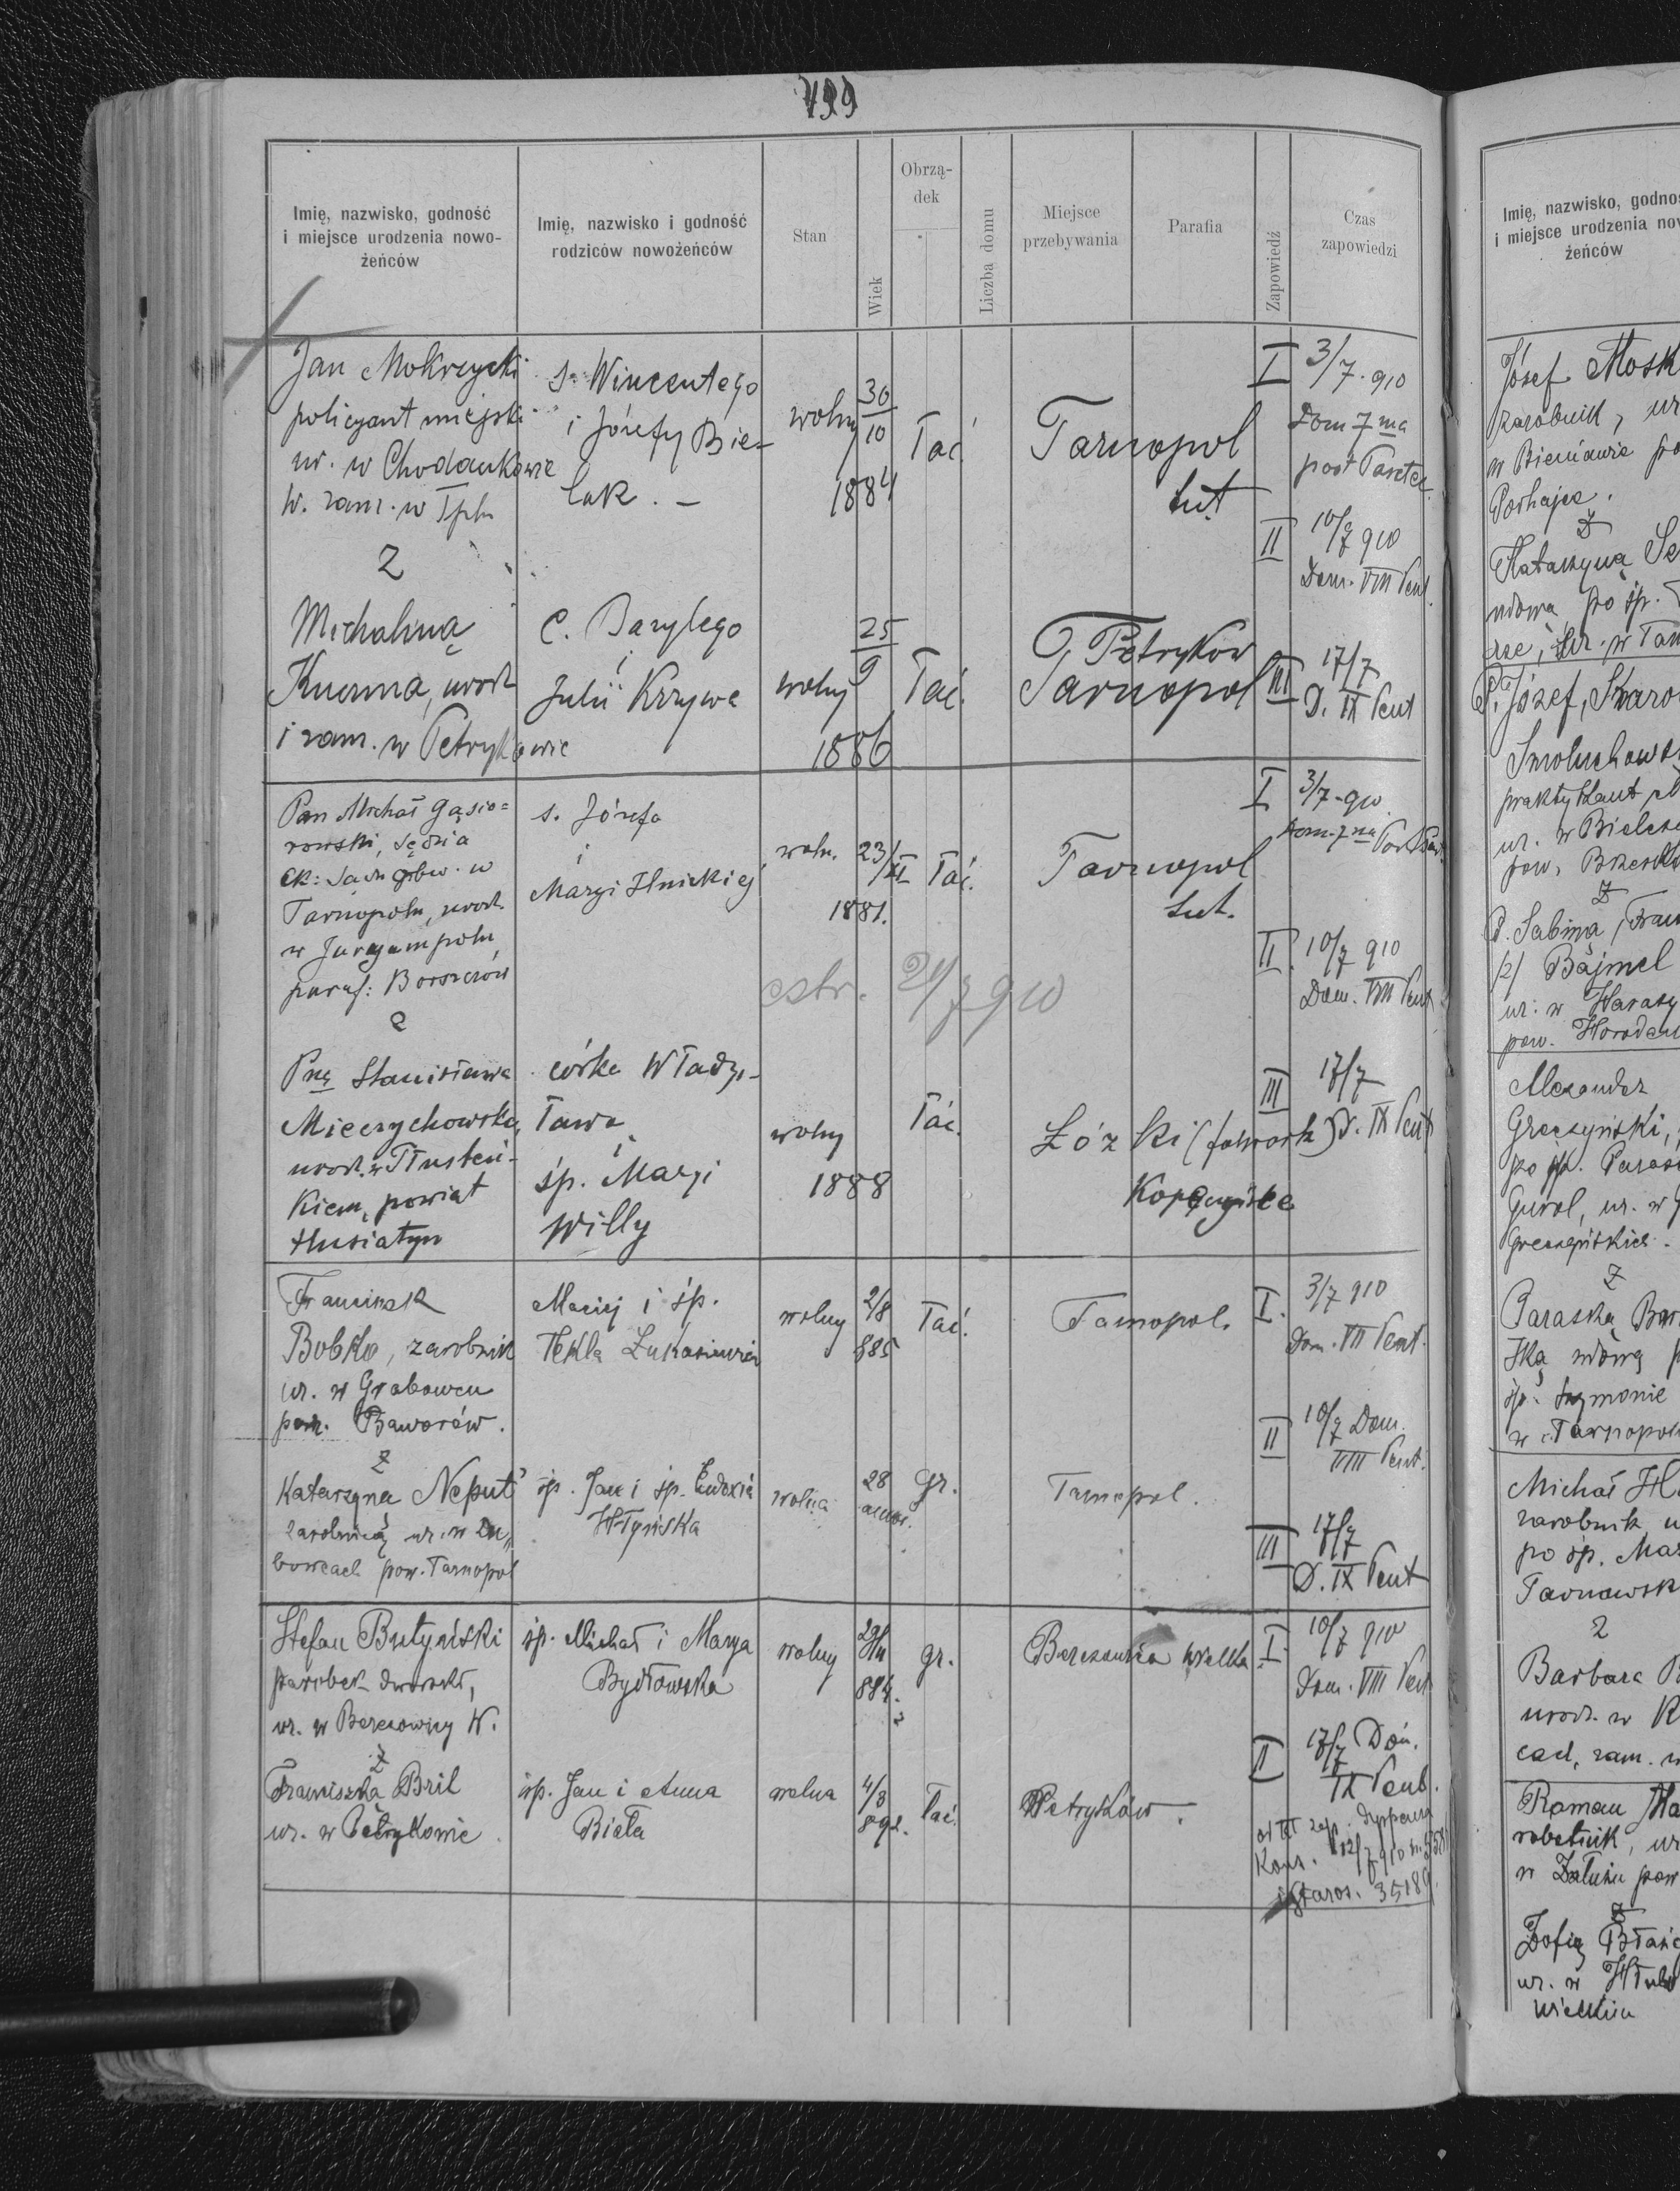 199
Imię, nazwisko, godność
i miejsce urodzenia nowo-
żeńców
Imię, nazwisko i godność
rodziców nowożeńców
Stan
Wiek
Obrzą-
dek
Liczba domu
Miejsce
przebywania
Parafia
Zapowiedź
Czas
zapowiedzi
Jan Mokrzycki
policyant miejski
ur. w Chodaukowie
W. zam. w Tplu
z
Michaliną
urodz
i zam. w Petrykowie
s. Wincentego
i Józefy Bie-
lak. —
c. Bazylego
i
Julii Krzywe
wolny
30
10
1884
łać.
Tarnopol
tut
wolny
25
9
1886
łać.
Petryków
Tarnopol
I 3/7. 910
Dom 7 ma
post
II 10/7 910
Dom. VIII Pent.
III 17/7
D. IX Pent
Pan Michał Gąsio=
rowski, sędzia
ck: w
Tarnopolu, urodz.
w Juryampolu
paraf: Borszczów
z
Pną Stanisława
Mieczychowska,
urodz. w Tłusteń-
kiem, powiat
Husiatyn
s. Józefa
i
Maryi Ilnickiej
córka Włady-
ława
i
śp. Maryi
Willy
woln.
23/XI
1881.
łać.
Tarnopol
tut.
extr. 21/7 910
wolny
1888
łać.
Łózki (folwark)
I 3/7 - 910
Dom. 7 ma Post
II. 10/7 910
Dom. VIII Pent
III 17/7
D. IX Pent
Franciszek
Bobko, zarobnik
ur. w Grabowcu
pow. Baworów.
z
Katarzyna Neput
zarobnicą ur. w Zu„
bowcach pow. Tarnopol
Maciej i śp.
Tekla Łukasiewicz
śp. Jan i śp. Eudoxia
Hłyńska
wolny
2/8
885
łać.
Tarnopol.
wolna
28
gr.
Tarnopol.
I. 3/7 910
Dom. VII Pent.
II 10/7 Dom.
VIII Pent.
III 17/7
D. IX Pent
Stefan Butyński
parobek dworski,
ur. w Berezowicy W.
z
Franciszka Bril
ur. w Petrykowie
śp. Michał i Marya
Bydłowska
śp. Jan i Anna
Biała
wolny
884.
gr.
Berezowica Wielka
wolna
4/3
892.
łać.
Petryków.
I. 10/7 910
Dom. VIII Pent
II 17/7 Dom.
IX Pent.
od III zap. dyspensa
Kons. 12/7 910
i Staros. 35189
Imię, nazwisko, godno
i miejsce urodzenia no
żeńców
Józef Mosk
zarobnik, ur
w Bieniawie po
z
Katarzyną Se
wdową po śp.
ur. w Tar
P. Józef, Karo
Smoluchows
praktykant
ur. w Bielcz
pow. Brzesk
z
P. Sabina, Fran
Bajmel
ur. w Harasy
pow. Horoden
Alexander
Greczyński,
po śp. Paras
Gurol, ur. w
z
Paraska Bar
ską wdową p
śp. Szymonie
w Tarnopol
Michał H
zarobnik u
po śp. Mar
Tarnawsk
z
Barbara
urodz. w R
cach, zam. w
Roman
robotnik, ur
w Załużu pow
z
Zofią Błaż
ur. w
Wielkim